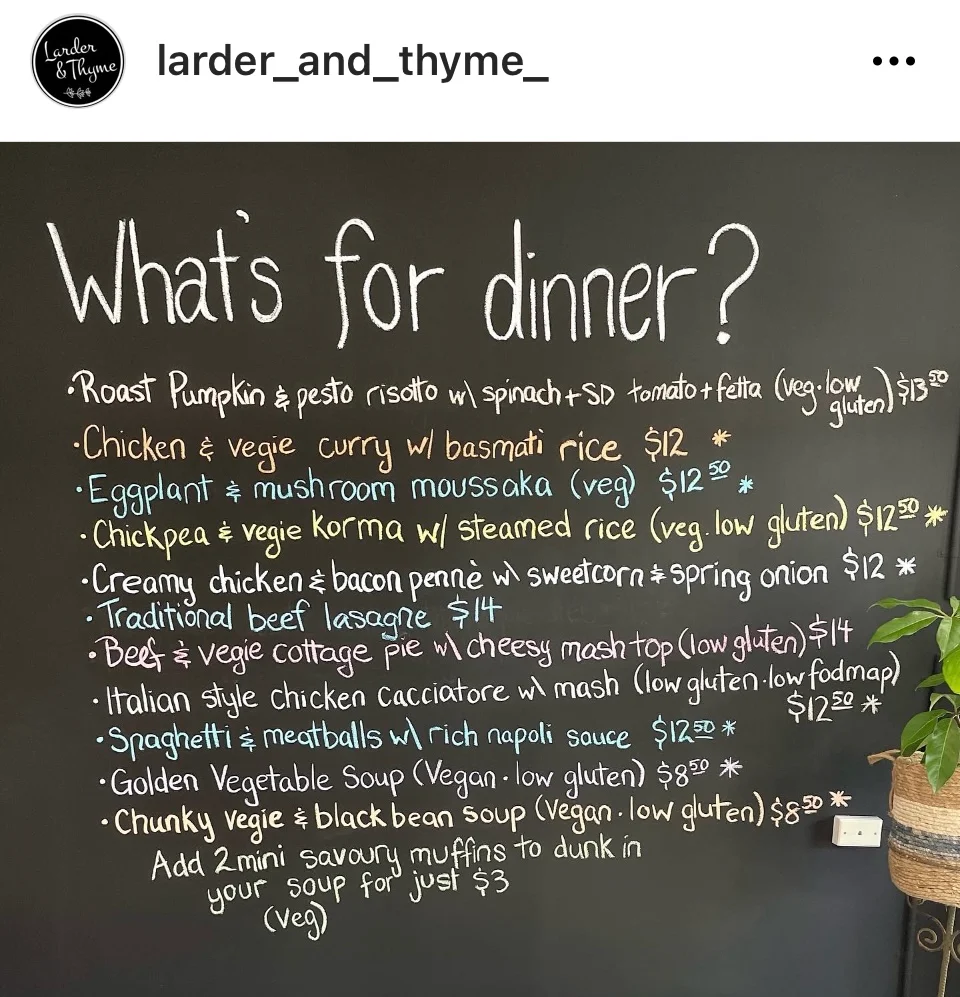 Larder
& Thyme
larder_and_thyme_
What's for dinner?
·Roast Pumpkin & pesto risotto w\ spinach+SD tomato+fetta (veg·low gluten) $13 50
·Chicken & vegie curry w/ basmati rice $12 *
·Eggplant & mushroom moussaka (veg) $12 50 *
·Chickpea & vegie korma w/ steamed rice (veg. low gluten) $12 50 *
·Creamy chicken & bacon pennè w\ sweetcorn & spring onion $12 *
·Traditional beef lasagne $14
·Beef & vegie cottage pie w\ cheesy mash top (low gluten) $14
·Italian style chicken cacciatore w\ mash (low gluten·low fodmap)
$12 50 *
·Spaghetti & meatballs w\ rich napoli sauce $12 50 *
·Golden Vegetable Soup (Vegan·low gluten) $8 50 *
·Chunky vegie & black bean soup (Vegan·low gluten) $8 50 *
Add 2 mini savoury muffins to dunk in
your soup for just $3
(veg)